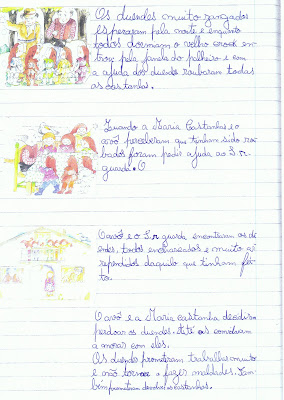 Os duendes muito zangados
esperaram pela noite e enquanto
todos dormiam o velho croch en-
trou pela janela do palheiro e com
a ajuda dos duende roubaram todas
as castanhas.
Quando a Maria Castanha e o
avô perceberam que tinham sido rou-
bados foram pedir ajuda ao S.r
guarda. O
O avô e o S.r guarda encontraram os du-
endes. todos encharcados e muito ar-
rependidos daquilo que tinham fei-
to.
O avô e a Maria castanha decidiram
perdoar os duendes. Até os convidaram
a morar com eles.
Os duende prometeram trabalhar muito
e não tornar a fazer maldades. Tam-
bém prometeram devolver as castanhas.